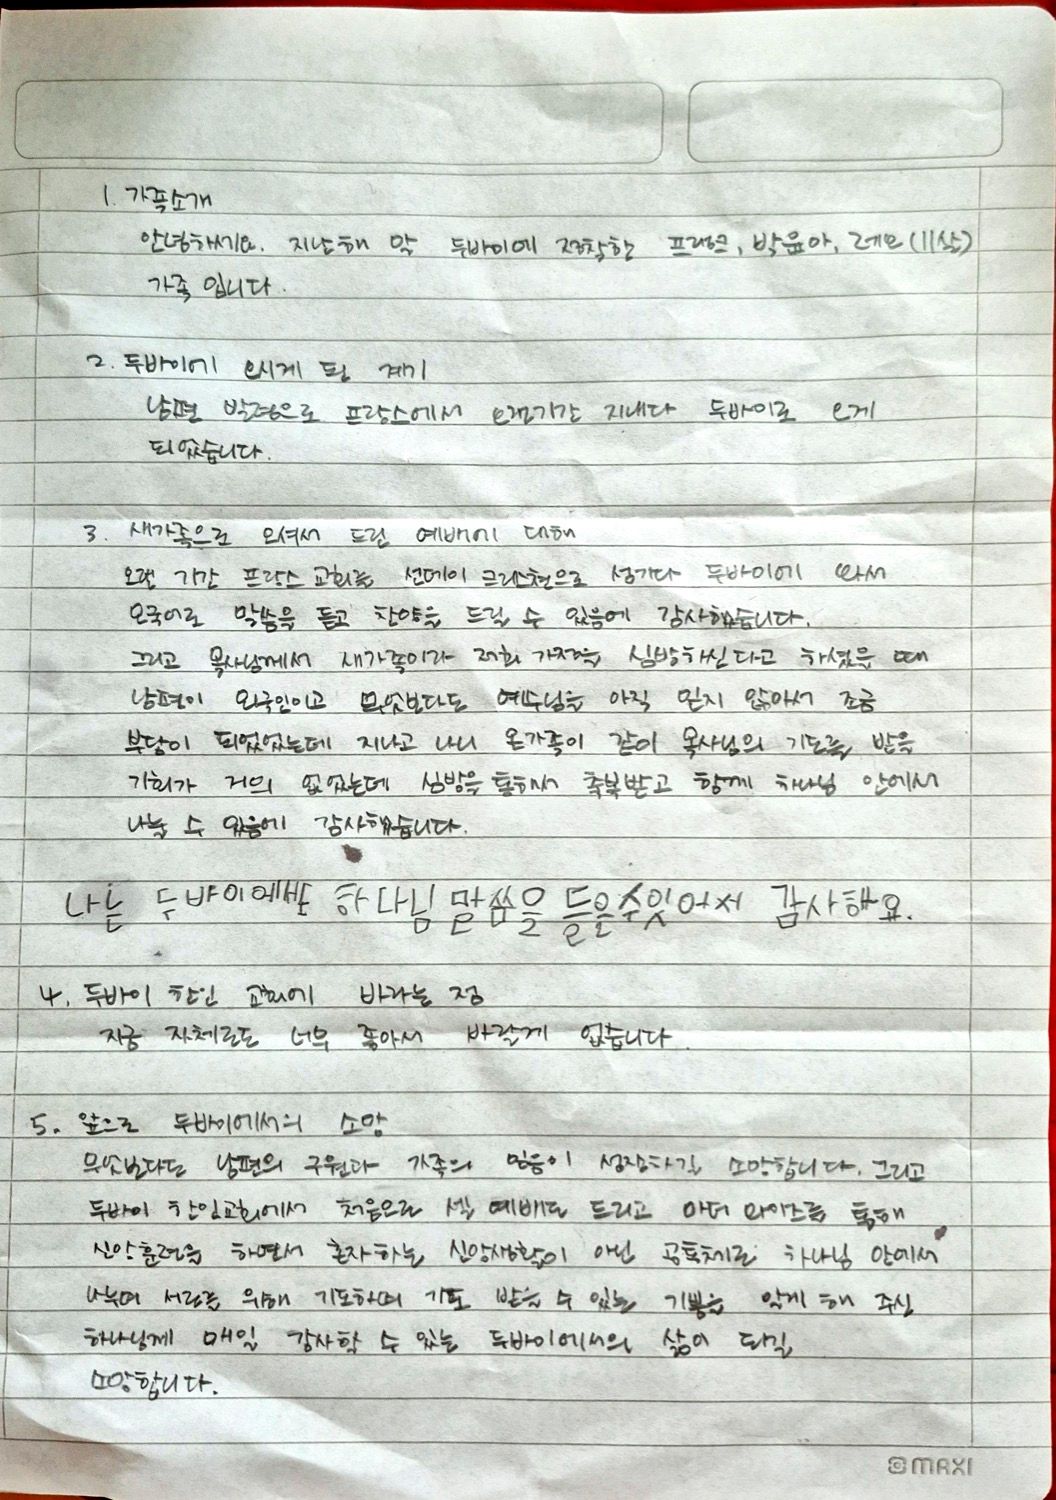 1. 가족소개
안녕하세요. 지난해 막 두바이에 정착한 프레드, 박윤아, 레오(11살)
가족 입니다.
2. 두바이에 오시게 된 계기
남편 발령으로 프랑스에서 오랜기간 지내다 두바이로 오게
되었습니다.
3. 새가족으로 오셔서 드린 예배에 대해
오랜 기간 프랑스 교회를 선데이 크리스천으로 섬기다 두바이에 와서
모국어로 말씀을 듣고 찬양을 드릴 수 있음에 감사했습니다.
그리고 목사님께서 새가족이라 저희 가정을 심방하신다고 하셨을 때
남편이 외국인이고 무엇보다도 예수님을 아직 믿지 않아서 조금
부담이 되었었는데 지나고 나니 온가족이 같이 목사님의 기도를 받을
기회가 거의 없었는데 심방을 통해서 축복받고 함께 하나님 안에서
나눌 수 있음에 감사했습니다.
나는 두바이에반 하나님 말씀을 들을수있어서 감사해요.
4. 두바이 한인 교회에 바라는 점
지금 자체로도 너무 좋아서 바랄게 없습니다.
5. 앞으로 두바이에서의 소망
무엇보다도 남편의 구원과 가족의 믿음이 성장하길 소망합니다. 그리고
두바이 한인교회에서 처음으로 셀 예배도 드리고 마더 와이즈를 통해
신앙훈련을 하면서 혼자하는 신앙생활이 아닌 공동체로 하나님 안에서
나누며 서로를 위해 기도하며 기도 받을 수 있는 기쁨을 알게 해 주신
하나님께 매일 감사할 수 있는 두바이에서의 삶이 되길
소망합니다.
MAXI